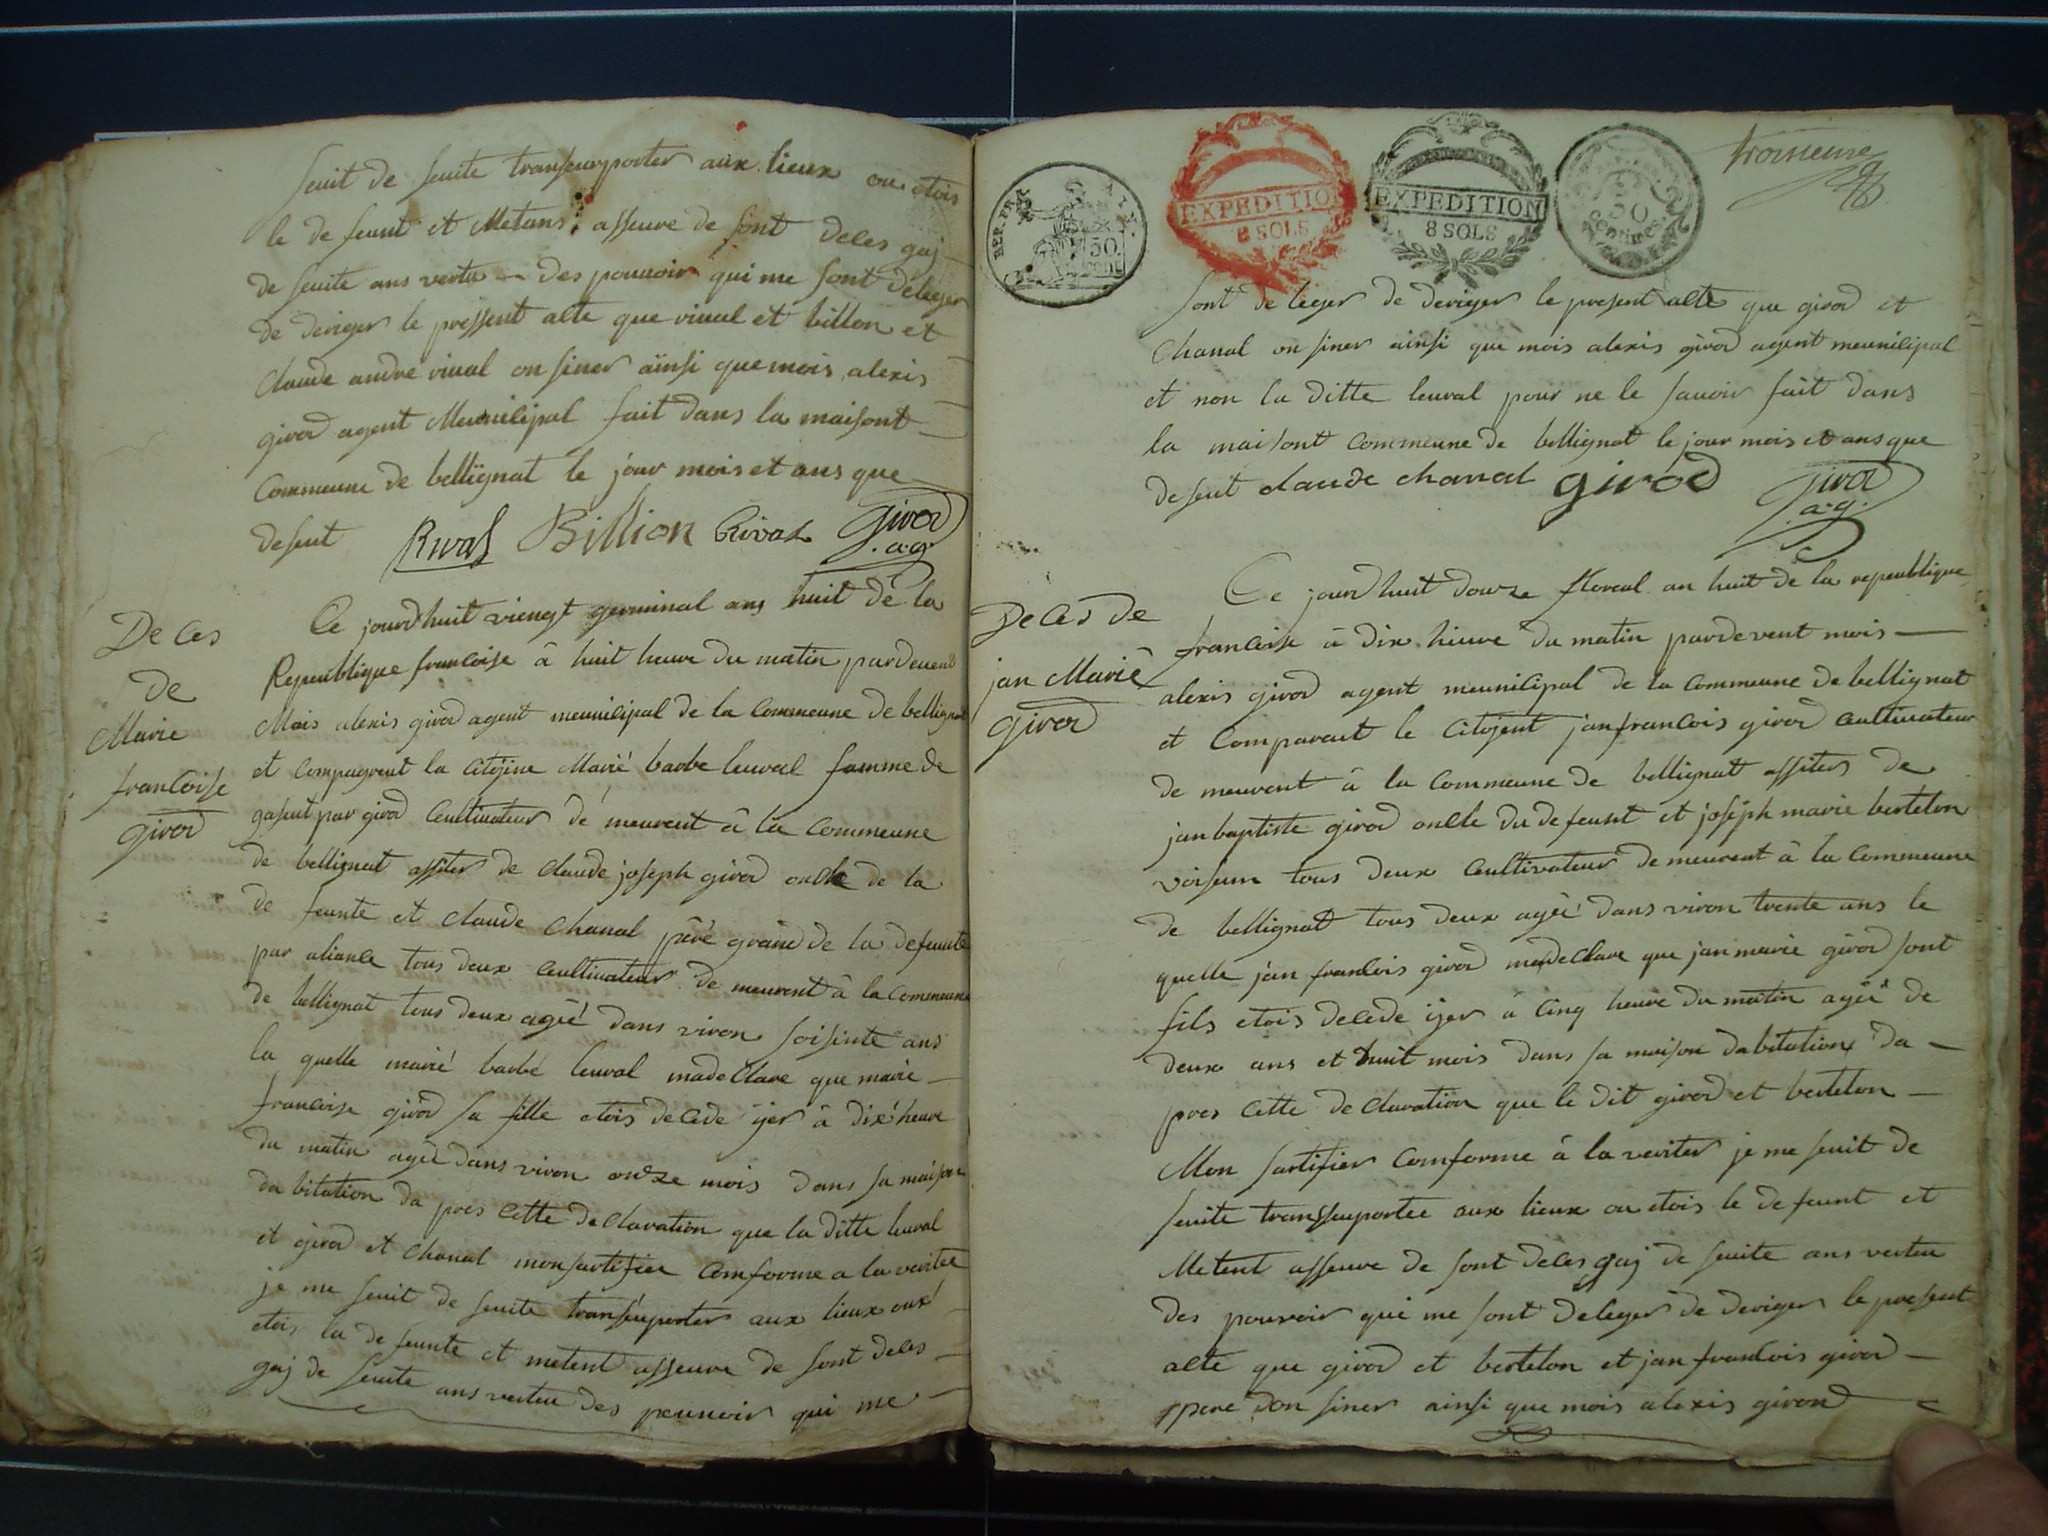 seuit de seuite transeuporter aux lieux ou etois
le de feunt et Metans asseure de sont deces gaj
de seuite ans vertu des pouvoir qui me sont deleger
de deriger le pressent alte que rival et billon et
claude andre rival on siner äinsi que mois alexis
girod agent Meunicipal fait dans la maisont
Commeune de bellignat le jour mois et ans que
deseut Rival Billion Rival Girod
.a.g.
De Ces
de
Marie
francoise
girod
Ce jourd'huit viengt germinal ans huit de la
Repeublique francoise à huit heure du matin pardevent
Mois alexis girod agent meunicipal de la Commeune de bellignat
et compareut la Citojine Marié barbe leuval famme de
gaseut par girod Ceultivateur de meurent à la Commeune
de bellignat assiter de Claude joseph girod oncle de la
de feunte et Claude Chanal péré grand de la defeunte
par aliance tous deux Ceultivateur de meurent à la Commeune
de bellignat tous deux ageé dans viron soisente ans
la quelle marié barbé leuval madeClare que marie
francoise girod sa fille etois decede ijer à dix heure
du matin agee dans viron onze mois dans sa maison
dabitation da pres cette declaration que la ditte leuval
et girod et Chanal mon sartifier Comforme a la veritee
je me seuit de seuite transeuporter aux lieux ouê
etois la de feunte et metent asseure de sont deces
gaj de seuite ans verteu des pouvoir qui me
REP. FRA.
50
CENT.
EXPEDITION
8 SOLS
EXPEDITION
8 SOLS
50
Centimes
troisieme
sont deleger de deriger le present alte que girod et
Chanal on siner ainsi que mois alexis girod agent meunicipal
et non la ditte leuval pour ne le savoir fait dans
la maisont Commeune de bellignat le jour mois et ans que
deseut claude chanal girod Girod
.a.g.
Deces de
jan Marie
girod
Ce jourd'huit douze floreal an huit de la repeublique
francoise à dix heure du matin pardevent mois
alexis girod agent meunicipal de la Commeune de bellignat
et Compareut le Citojent jan francois girod Ceultivateur
de meurent à la Commeune de bellignat assiter de
jan baptiste girod oncle du defeunt et joseph marie bertelon
voiseun tous deux Ceultivateur demeurent à la Commeune
de bellignat tous deux ageé dans viron trente ans le
quelle jan francois girod madeClare que jan marie girod sont
fils etois decede ijer à cinq heure du matin ageé de
deux ans et huit mois dans sa maison dabitation da
pres cette declaration que le dit girod et bertelon
Mon sartifier Comforme à la veriter je me seuit de
seuite transeuportee aux lieux ou etois le defeunt et
Metent asseure de sont deces gaj de seuite ans verteu
des pouvoir qui me sont deleger de deriger le present
alte que girod et bertelon et jan francois girod
pere don siner ainsi que mois alexis girod